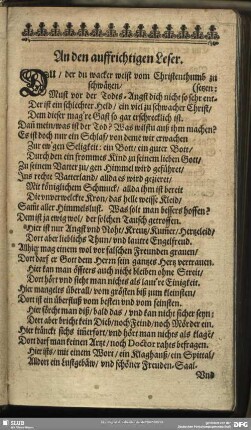 An den auffrichtigen Leser.
DU / der du wacker weist vom Christenthumb zu
schwätzen / (setzen;
Must vor der Todes-Angst dich nicht so sehr ent-
Der ist ein schlechter Held / ein viel zu schwacher Christ /
Dem dieser mag're Gast so gar erschrecklich ist.
Dan mein / was ist der Tod? Was wilstu auß ihm machen?
Es ist doch nur ein Schlaff / von dene wir erwachen
Zur ew'gen Seligkeit: ein Bot / ein guter Bott /
Durch den ein frommes Kind zu seinem lieben Gott /
Zu seinem Vater zu / gen Himmel wird geführet /
Ins rechte Vaterland / allda es wird gezieret /
Mit königlichem Schmuck / allda ihm ist bereit
Die unverwelckte Kron / das helle weisse Kleid /
Samt aller Himmelslust. Was solt man bessers hoffen?
Dem ist ja ewig wol / der solchen Tausch getroffen.
Hier ist nur Angst und Noht / Kreutz / Kumer / Hertzeleid /
Dort aber lieblichs Thun / und lautre Engelfreud.
Alhier mag einem wol vor falschen Freunden grauen /
Dort darf er Gott dem Herrn sein gantzes Hertz vertrauen.
Hier kan man öffters auch nicht bleiben ohne Streit /
Dort hört und sieht man nichts als laut're Einigkeit.
Hier mangels überall / vom grösten biß zum kleinsten /
Dort ist ein überfluß vom besten und vom feinsten.
Hier förcht man diß / bald das / und kan nicht sicher seyn;
Dort aber bricht kein Dieb / noch Feind / noch Mörder ein.
Hier kränckt sichs imerfort / und hört man nichts als klage /
Dort darf man keinen Artzt / noch Doctor rahts befragen.
Hier ists / mit einem Wort / ein Klaghauß / ein Spittal /
Aldort ein lustgebäw / und schöner Freuden-Saal.
Und
SLUB